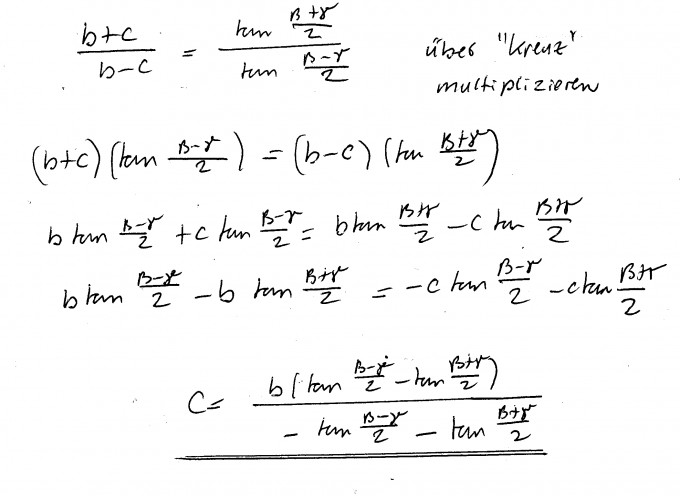 (b+c)/(b-c) = (tan (β+γ)/2)/(tan (β-γ)/2) über "Kreuz"
multiplizieren
(b+c) (tan (β-γ)/2) = (b-c) (tan (β+γ)/2)
b tan (β-γ)/2 + c tan (β-γ)/2 = b tan (β+γ)/2 - c tan (β+γ)/2
b tan (β-γ)/2 - b tan (β+γ)/2 = -c tan (β-γ)/2 - c tan (β+γ)/2
c = b(tan (β-γ)/2 - tan (β+γ)/2)/(- tan (β-γ)/2 - tan (β+γ)/2)